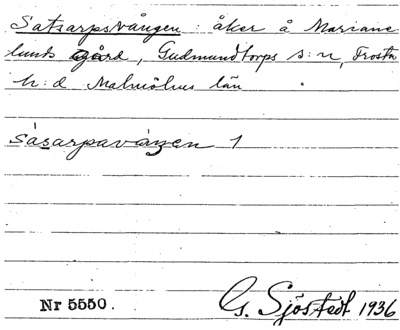 Satsarpsvången: åker å Mariane-
lunds gård, Gudmundtorps s:n, Frosta
h:d Malmöhus län
såsarpavången 1
Nr 5550. G. Sjöstedt 1936